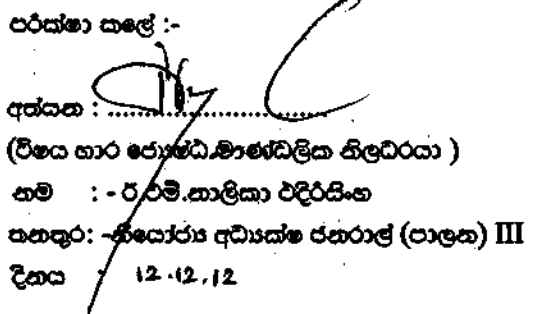 පරීක්ෂා කළේ :-
අත්සන : ..................................
(විෂය භාර ජ්‍යෙෂ්ඨ මාණ්ඩලික නිලධරයා )
නම : - ඊ.එම්.තාලිකා එදිරිසිංහ
තනතුර: -නියෝජ්‍ය අධ්‍යක්ෂ ජනරාල් (පාලන) III
දිනය : 12.12.12